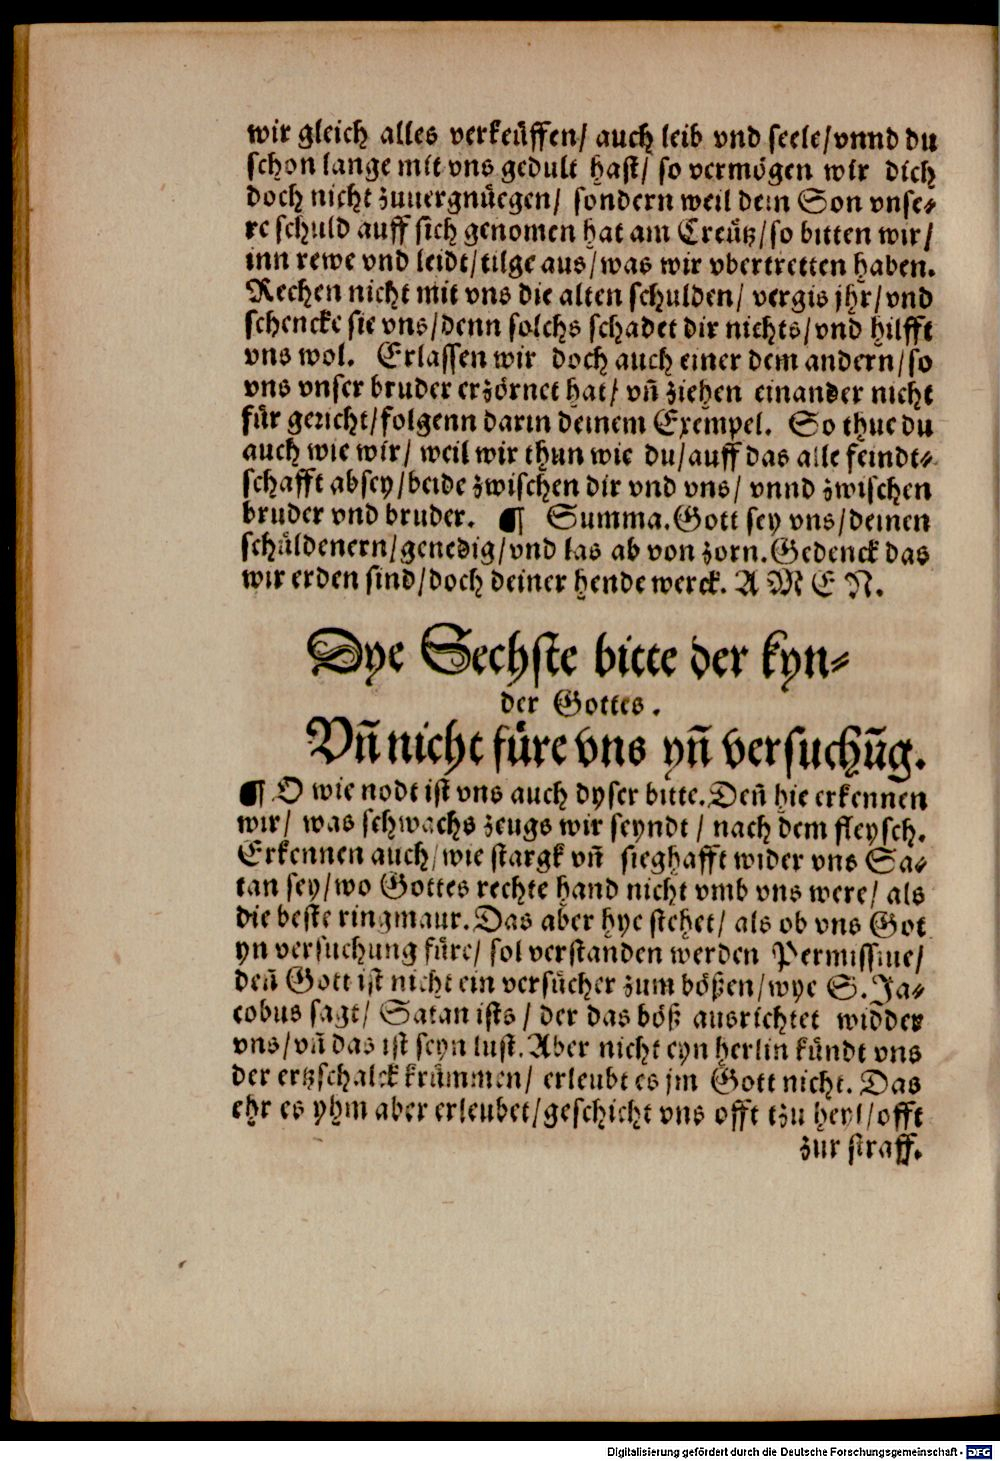 wir gleich alles verkeüffen/ auch leib vnd seele/vnnd du
schon lange mit vns gedult hast/ so vermögen wir dich
doch nicht zuuergnüegen/ sondern weil dein Son vnse⸗
re schuld auff sich genomen hat am Creütz/so bitten wir/
inn rewe vnd leidt/tilge aus/was wir vbertretten haben.
Rechen nicht mit vns die alten schulden/ vergis jhr/vnd
schencke sie vns/denn solchs schadet dir nichts/vnd hilfft
vns wol. Erlassen wir doch auch einer dem andern/so
vns vnser bruder erzörnet hat/ vñ ziehen einander nicht
für gericht/folgenn darin deinem Exempel. So thue du
auch wie wir/ weil wir thun wie du/auff das alle feindt⸗
schafft absey/beide zwischen dir vnd vns/ vnnd zwischen
bruder vnd bruder. ¶ Summa.Gott sey vns/deinen
schüldenern/genedig/vnd las ab von zorn.Gedenck das
wir erden sind/doch deiner hende werck. A M E N.
Dye Sechste bitte der kyn⸗
der Gottes.
Vñ nicht füre vns yñ versuchũg.
¶ O wie nodt ist vns auch dyser bitte.Deñ hie erkennen
wir/ was schwachs zeugs wir seyndt/ nach dem fleysch.
Erkennen auch/wie stargk vñ sieghafft wider vns Sa⸗
tan sey/wo Gottes rechte hand nicht vmb vns were/ als
die beste ringmaur.Das aber hye stehet/ als ob vns Got
yn versuchung füre/ sol verstanden werden Permissiue/
deñ Gott ist nicht ein versücher zum bößen/wye S.Ja⸗
cobus sagt/ Satan ists/ der das böß ausrichtet widder
vns/vñ das ist seyn lust.Aber nicht eyn herlin kündt vns
der ertzschalck krümmen/ erleubt es jm Gott nicht. Das
ehr es yhm aber erleubet/geschicht vns offt tzu heyl/offt
zur straff.
Digitalisierung gefördert durch die Deutsche Forschungsgemeinschaft - DFG